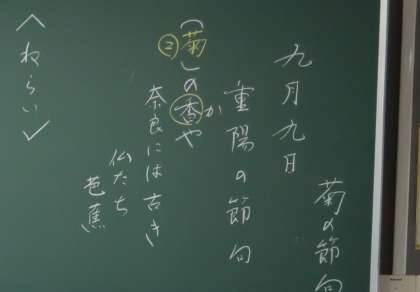 菊の節句
九月九日
重陽の節句
か
②
(菊)の香や
奈良には古き
仏たち
芭蕉
＜ねらい＞